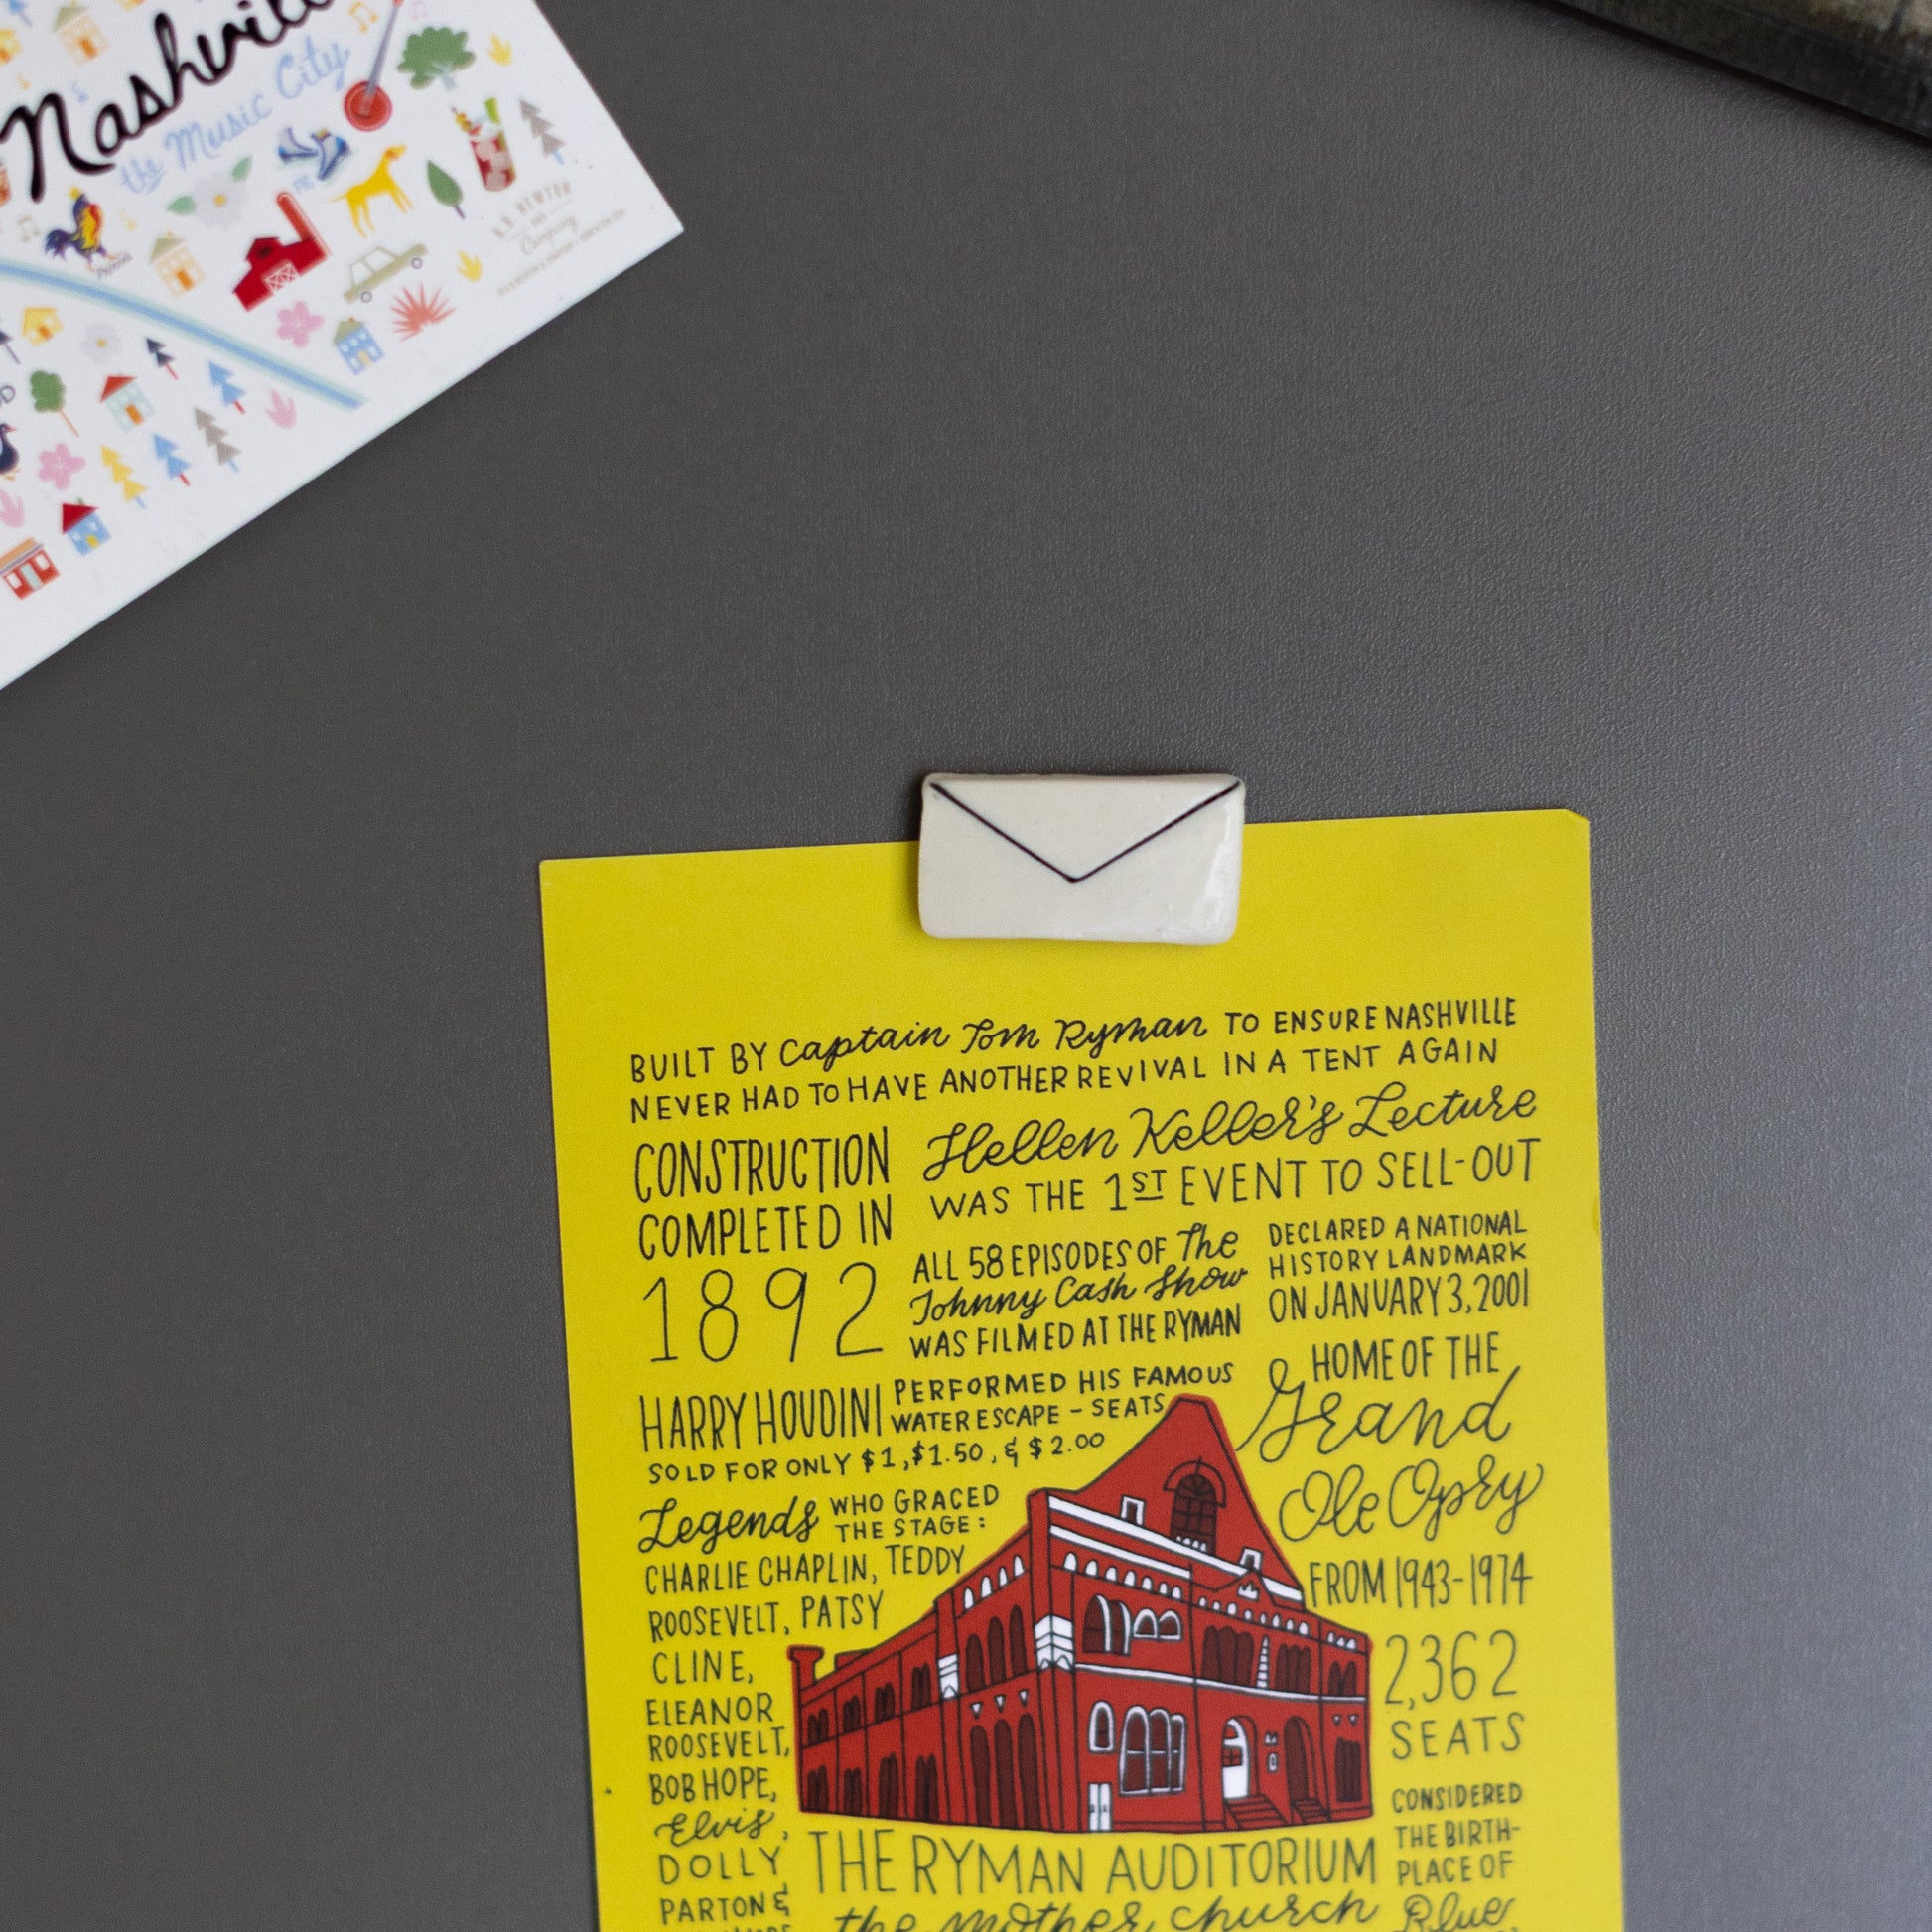 Nashville
the Music City
BUILT BY Captain Tom Ryman TO ENSURE NASHVILLE
NEVER HAD TO HAVE ANOTHER REVIVAL IN A TENT AGAIN
CONSTRUCTION
COMPLETED IN
1892
Hellen Keller's Lecture
WAS THE 1ST EVENT TO SELL-OUT
ALL 58 EPISODES OF The
Johnny Cash Show
WAS FILMED AT THE RYMAN
DECLARED A NATIONAL
HISTORY LANDMARK
ON JANUARY 3, 2001
HARRY HOUDINI PERFORMED HIS FAMOUS
WATER ESCAPE - SEATS
SOLD FOR ONLY $1, $1.50, & $2.00
HOME OF THE
Grand
Ole Opry
FROM 1943-1974
Legends WHO GRACED
THE STAGE:
CHARLIE CHAPLIN, TEDDY
ROOSEVELT, PATSY
CLINE,
ELEANOR
ROOSEVELT,
BOB HOPE,
Elvis,
DOLLY
PARTON &
2,362
SEATS
CONSIDERED
THE BIRTH-
PLACE OF
Blue
THE RYMAN AUDITORIUM
the mother church